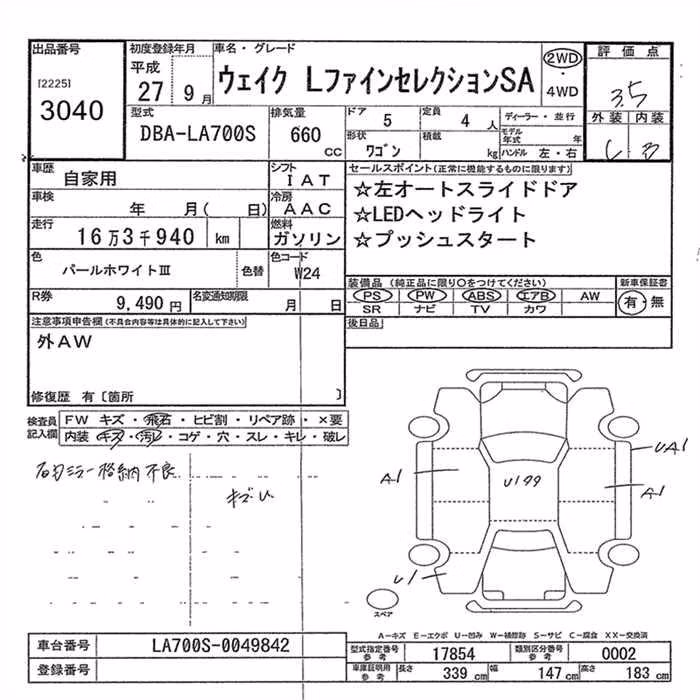 出品番号
[2225]
3040
初度登録年月
平成
27 9月
車名・グレード
ウェイク LファインセレクションSA
2WD
・
4WD
評価点
3.5
外装 内装
C B
型式
DBA-LA700S
排気量
660
CC
ドア 5
定員 4 人
ディーラー・並行
形状
ワゴン
積載
kg
モデル年式 年
ハンドル 左・右
車歴
自家用
シフト
IAT
車検
年 月( 日)
冷房
AAC
走行
16万3千940 km
燃料
ガソリン
色
パールホワイトⅢ
色替
色コード
W24
R券
9,490 円
名変通知期限
月 日
セールスポイント(正常に機能するものに限ります)
☆左オートスライドドア
☆LEDヘッドライト
☆プッシュスタート
装備品 (純正品に限り○をつけてください)
新車保証書
PS PW ABS エアB AW
有・無
SR ナビ TV カワ
後日品
注意事項申告欄(不具合内容等は具体的に記入して下さい)
外AW
修復歴 有〔箇所 〕
検査員記入欄
FW キズ・飛石・ヒビ割・リペア跡・×要
内装・キズ・汚レ・コゲ・穴・スレ・キレ・破レ
右ミラー格納不良
A1
U1
UA1
A1
スペア
A-キズ E-エクボ U-凹み W-補修跡 S-サビ C-腐食 XX-交換済
車台番号
LA700S-0049842
登録番号
型式指定番号
参考
17854
類別区分番号
参考
0002
車庫証明用
参考
長さ 339 cm
幅 147 cm
高さ 183 cm